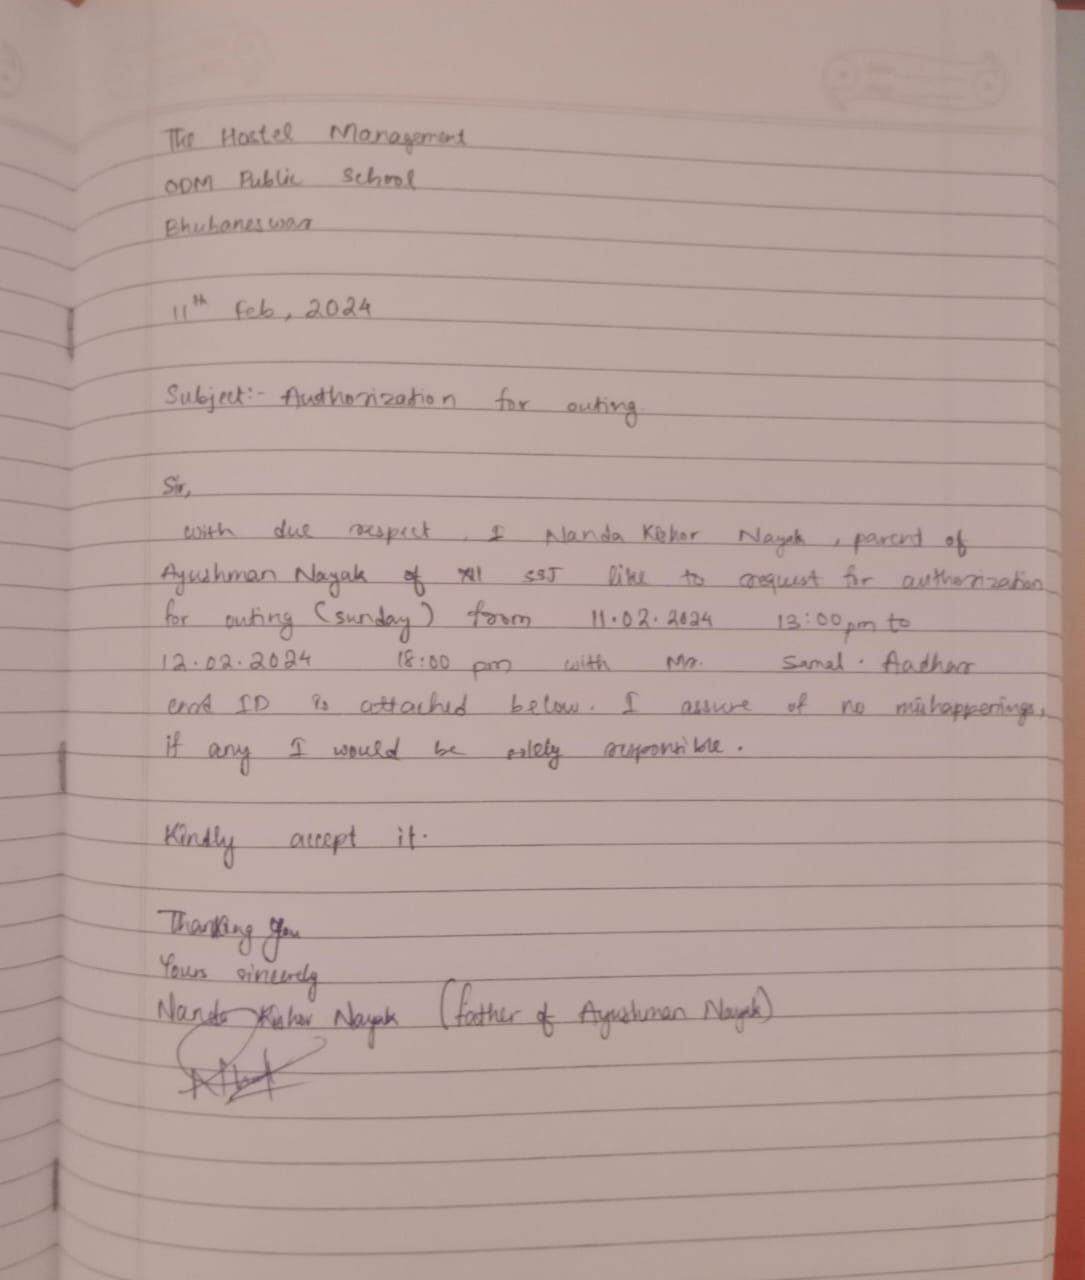 The Hostel Management
ODM Public School
Bhubaneswar
11th Feb, 2024
Subject:- Authorization for outing.
Sir,
with due respect, I Nanda Kishor Nayak, parent of
Ayushman Nayak of XII SSJ like to request for authorization
for outing (sunday) from 11.02.2024 13:00 pm to
12.02.2024 18:00 pm with Mr. Samal. Aadhar
card ID is attached below. I assure of no mishappenings,
if any I would be solely responsible.
Kindly accept it.
Thanking you
Yours sincerely
Nanda Kishor Nayak (father of Ayushman Nayak)